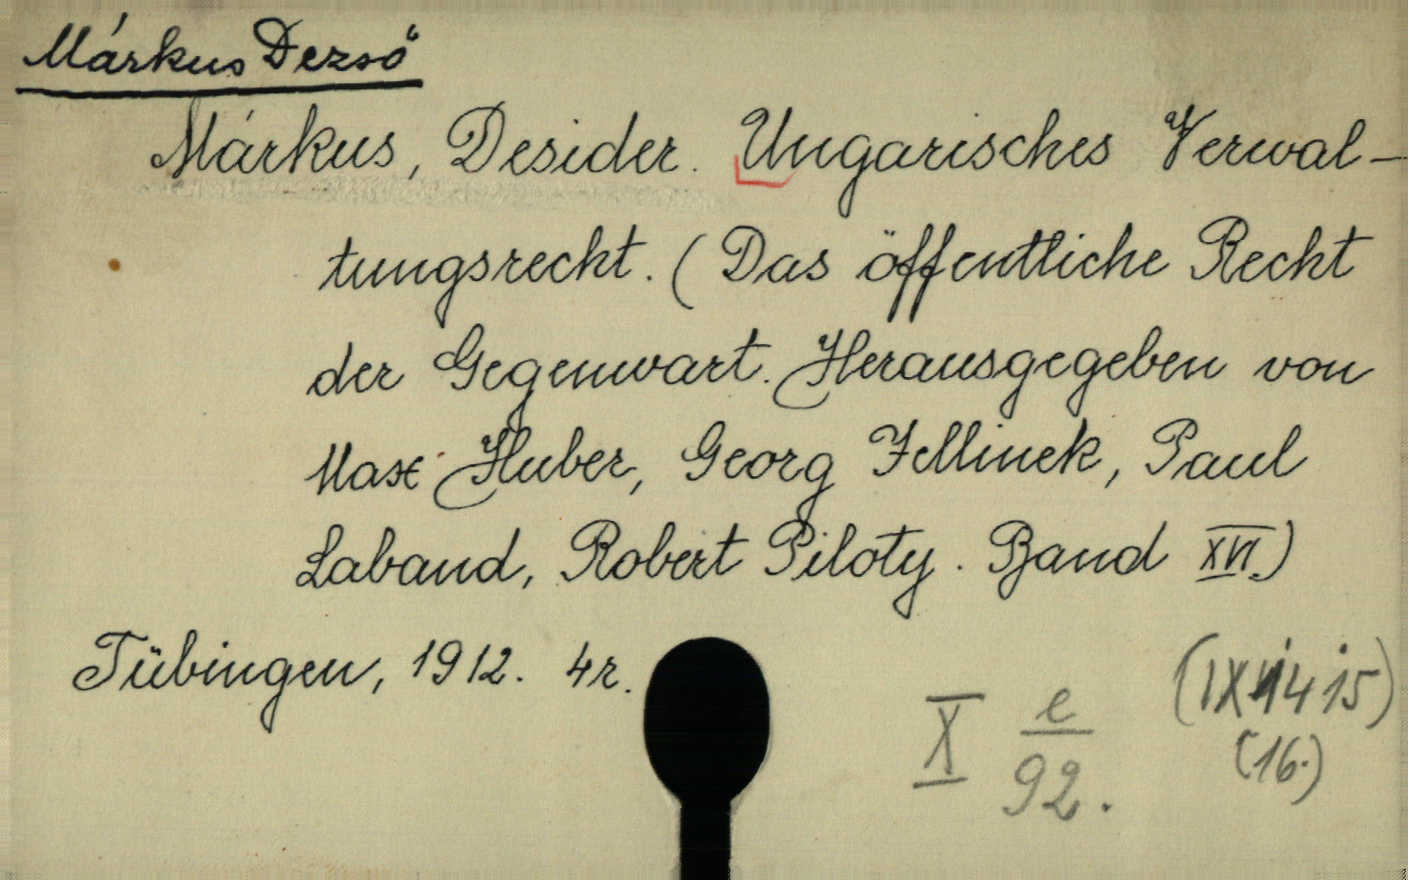 Márkus Dezső
Márkus, Desider. Ungarisches Verwal-
tungsrecht. (Das öffentliche Recht
der Gegenwart. Herausgegeben von
Max Huber, Georg Jellinek, Paul
Laband, Robert Piloty. Band XVI.)
Tübingen, 1912. 4r.
X e/92.
15)
(16.)